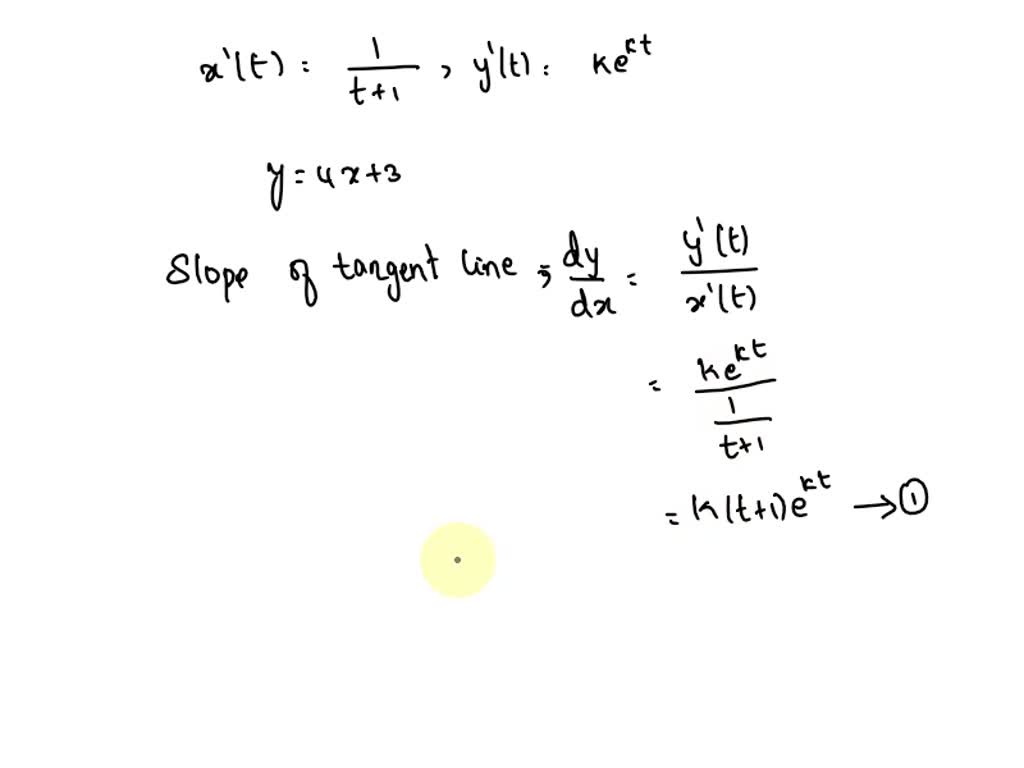 x'(t) = 1/(t+1) , y'(t) = ke^{kt}
y = 4x+3
Slope of tangent line ; dy/dx = y'(t)/x'(t)
= ke^{kt}/(1/(t+1))
= k(t+1)e^{kt} → ①